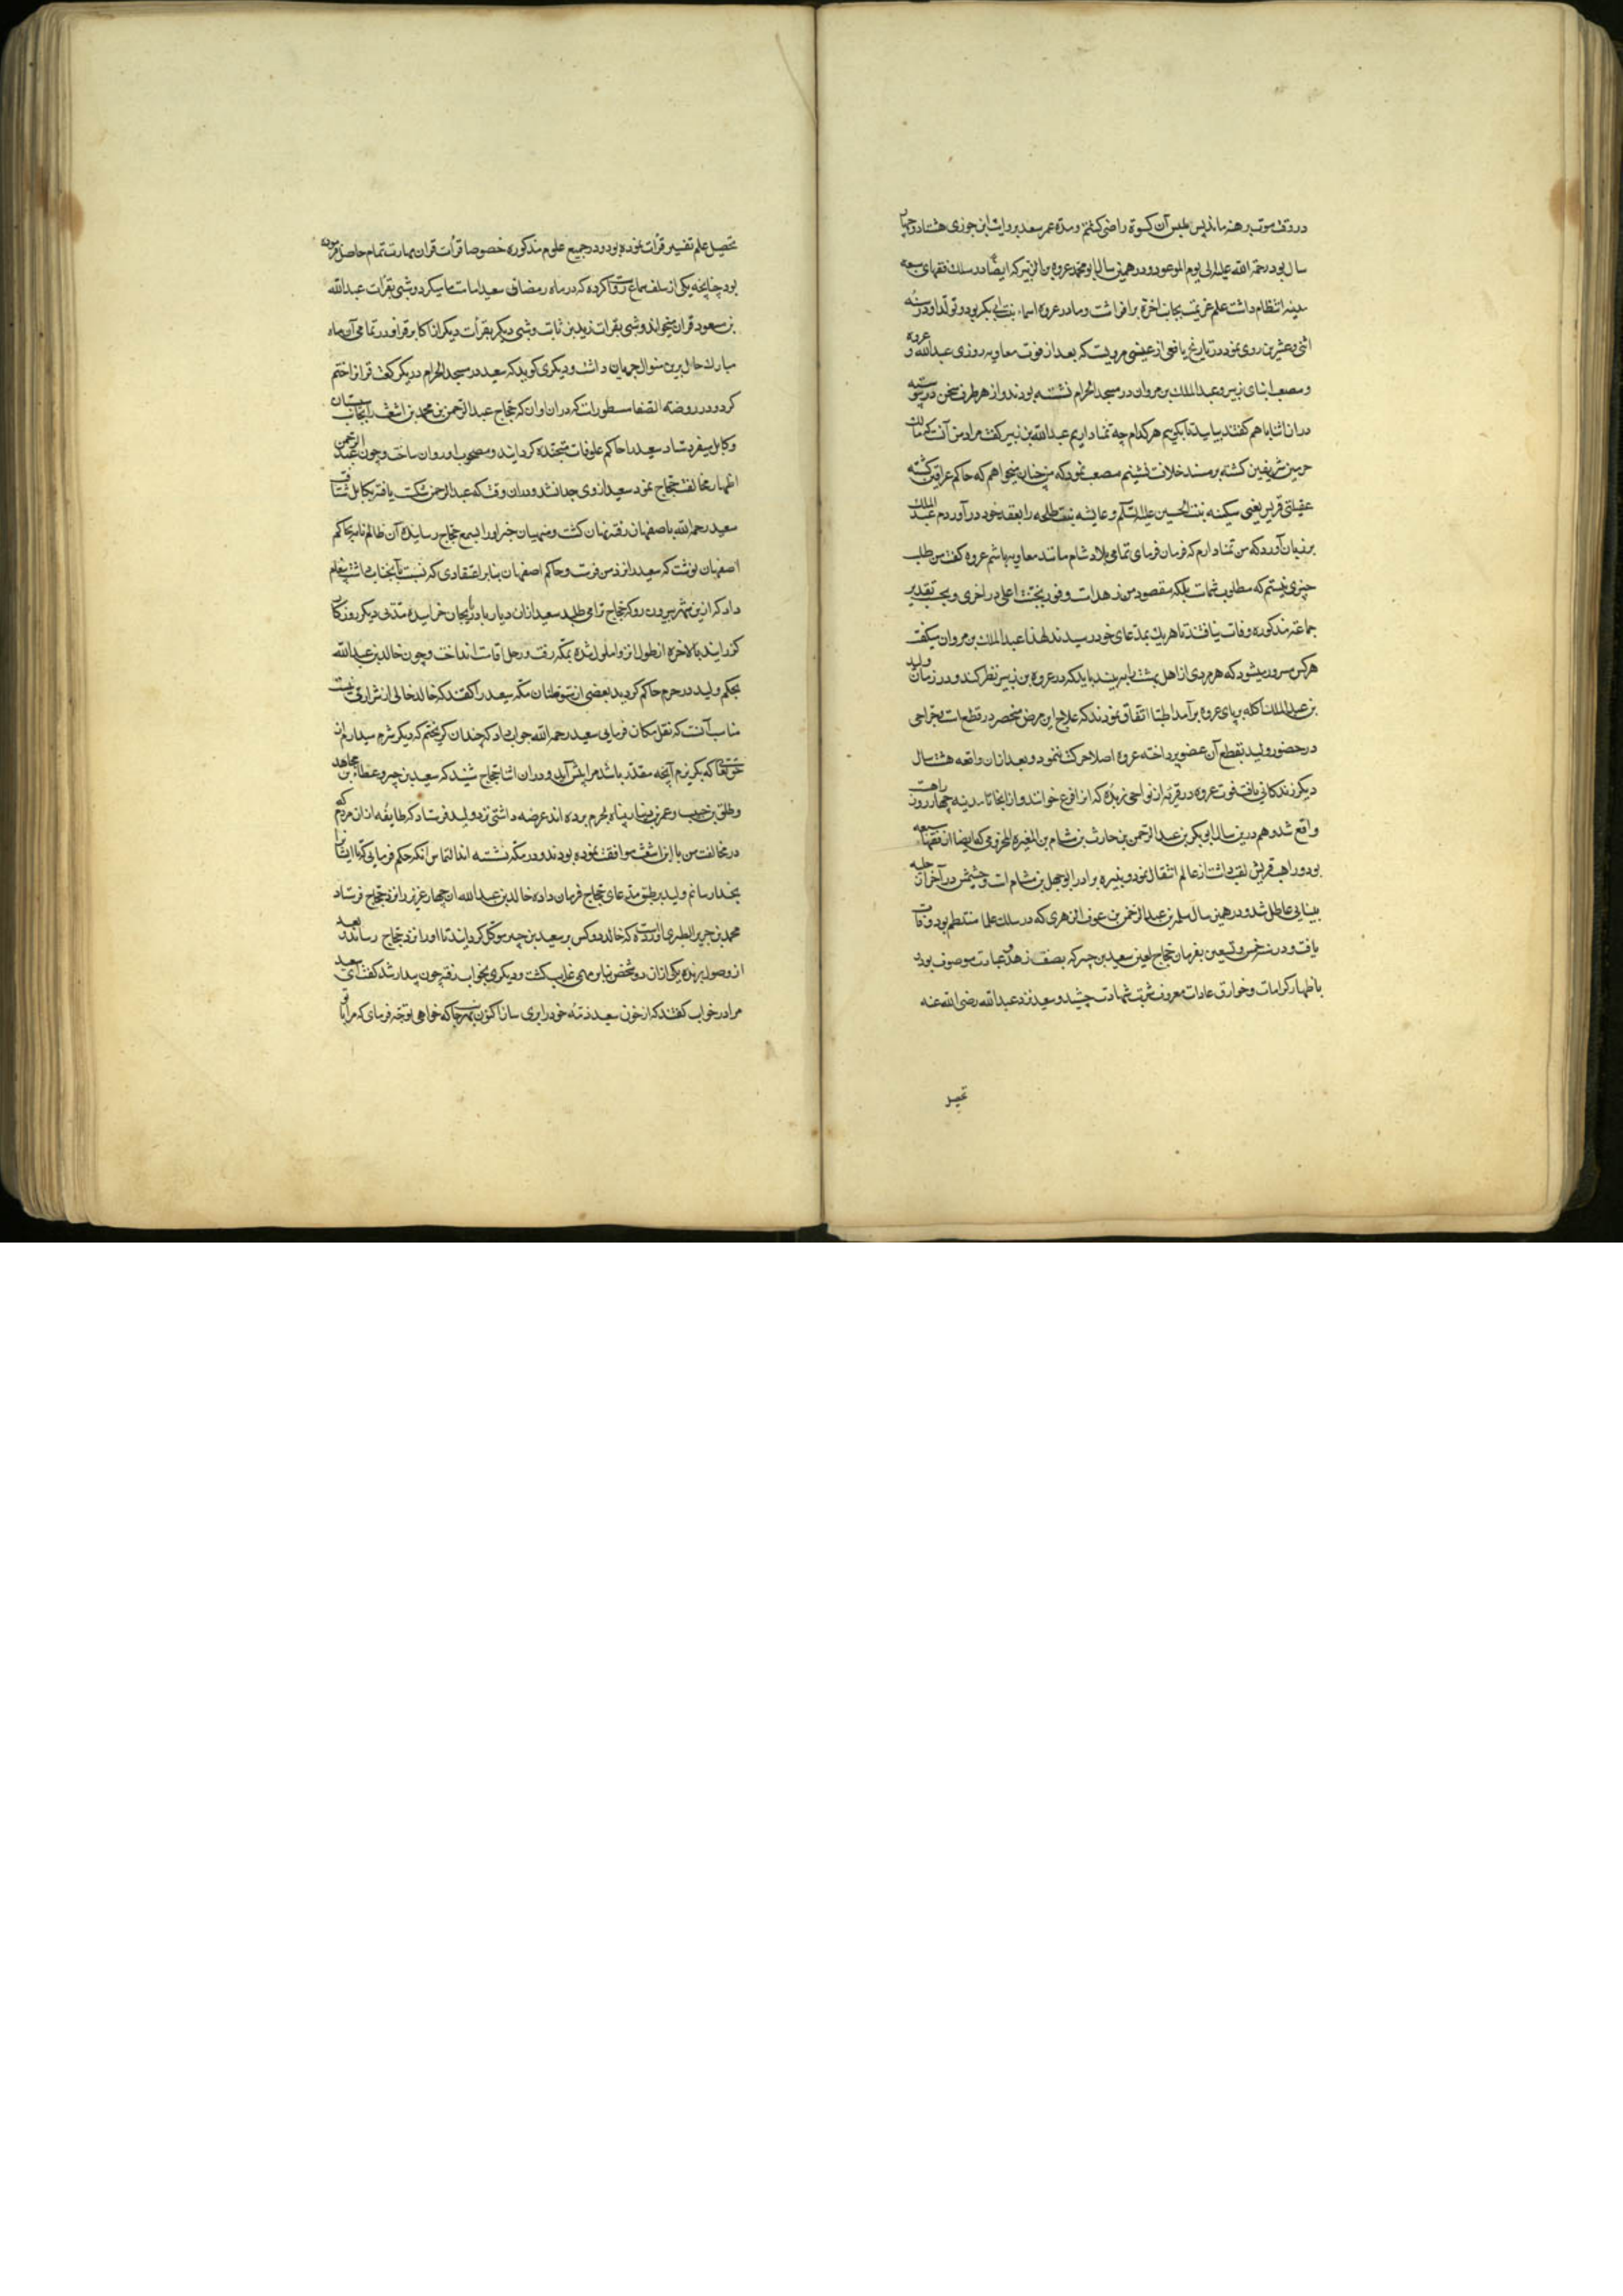 در وقت موت برهنه ماند پس بلبس آن کسوة راضی کشتم و مدة عمر سعید بروایت ابن جوزی هشتاد و چهار
سال بود رحمة الله علیه الی یوم الموعود و در همین سال ابو محمد عروه بن الزبیر که ایضا در سلک فقهای سبعه
مدینه انتظام داشت علم عزیمت بجانب اخرة برافراشت و مادر عروه اسماء بنت ابی بکر بود و تولد او در سنه
اثنی و عشرین روی نمود در تاریخ یافعی از عتبی مرویست که بعد از فوت معاویه روزی عبدالله و عروه
و مصعب ابنای زبیر و عبد الملک بن مروان در مسجد الحرام نشسته بودند و از هر طرف سخن در پیوسته
در ان اثنا با هم کفتند بیایید تا بکوییم هر کدام چه تمنا داریم عبدالله بن زبیر کفت مراد من آنست که مالک
حرمین شریفین کشته بر مسند خلافت نشینم مصعب نمود که من چنان میخواهم که حاکم عراقین کشته
عقیلتی قریش یعنی سکینه بنت الحسین علیه السلام و عایشه بنت طلحه را بعقد خود در آوردم عبد الملک
بر زبان آورد که من تمنا دارم که فرمان فرمای تمامی بلاد شام مانند معاویه باشم عروه کفت من طلب
چیزی نیستم که مطلوب شماست بلکه مقصود من زهد است و فوز بجنت اعلی در اخری و بحسب تقدیر
جماعة مذکوره وفات نیافتند تا هر یک بمدعای خود رسیدند لهذا عبد الملک بن مروان میکفت
هرکس مسرور میشود که مردی از اهل بهشت را ببیند باید که در عروه بن زبیر نظر کند و در زمان ولید
بن عبد الملک اکله بر پای عروه برآمد اطبا اتفاق نمودند که علاج این مرض منحصر در قطع است جراحی
در حضور ولید بقطع آن عضو پرداخته عروه اصلا حرکت ننمود و بعد ازان واقعه هشت سال
دیکر زندکانی یافت فوت عروه در قریه از نواحی ربذه که انرا فرع خوانند و از انجا تا مدینه چهار روزه راهست
واقع شد و هم درین سال ابو بکر بن عبد الرحمن بن حارث بن هشام بن المغیره المخزومی که ایضا از فقهاء سبعه
بود و راهب قریش لقب داشت از عالم انتقال نمود و نبیره برادر ابو جهل بن هشام است و چشمش در آخر از حلیه
بینایی عاطل شد و در همین سال سلمه بن عبد الرحمن بن عوف الزهری که در سلک علما منتظم بود وفات
یافت و در سنه خمس و تسعین بفرمان حجاج لعین سعید بن جبیر که بصفت زهد و عبادت موصوف بود و
باظهار کرامات و خوارق عادات معروف شربت شهادت چشید و سعید نزد عبدالله رضی الله عنه
تحصیل
تحصیل علم تفسیر قرأت نموده بود و در جمیع علوم مذکوره خصوصا قرأت قران مهارت تمام حاصل فرموده
بود چنانچه یکی از سلف سماع روایت کرده که در ماه رمضان سعید امامت ما میکرد و شبی بقرأت عبدالله
بن مسعود قران میخواند و شبی بقرات زید بن ثابت و شبی دیکر بقرأت دیکر از اکابر قرا و در تمامی آن ماه
مبارک حال برین منوال جریان داشت و دیکری کوید که سعید در مسجد الحرام در یک رکعت قرانرا ختم
کرد و در روضة الصفا مسطورات که در ان اوان که حجاج عبد الرحمن بن محمد بن اشعث را بجانب سیستان
و کابل میفرستاد سعید را حاکم علوفات متجنده کردانید و مصحوب او روان ساخت و چون عبد الرحمن
اظهار مخالفت حجاج نمود سعید از وی جدا نشد و دران وقت که عبد الرحمن شکست یافته بکابل شتافت
سعید رحمه الله باصفهان رفته پنهان کشت و منهیان خبر او را بسمع حجاج رسانیده آن ظالم نامه بحاکم
اصفهان نوشت که سعید را نزد من فرست و حاکم اصفهان بنابر اعتقادی که نسبت بآنجناب داشت پیغام
داد که ازین شهر بیرون رو که حجاج ترا می طلبد سعید ازان دیار باذربایجان خرامیده مدتی دیکر روزکار
کذرانید بالاخره از طول انزوا ملول شده بمکه رفت و رحل اقامت انداخت و چون خالد بن عبدالله
بحکم ولید در حرم حاکم کردید بعضی از متوطنان مکه سعید را کفتند که خالد خالی از شرارتی نیست
مناسب آنست که نقل مکان فرمایی سعید رحمه الله جواب داد که چندان کریختم که دیکر شرم میدارم از
حق تعالی که بکریزم آنچه مقدر باشد مرا پیش آید و دران اثنا حجاج شنید که سعید بن جبیر و عطا و مجاهد
و طلق بن حبیب و عمرو بن دینار پناه بحرم برده اند عرضه داشتی نزد ولید فرستاد که طایفه ازان مردم که
در مخالفت من با ابن اشعث موافقت نموده بودند و در مکه نشسته اند التماس انکه حکم فرمایی که تا ایشانرا
بخدا رسانم ولید بر طبق مدعای حجاج فرمان داده خالد بن عبدالله ان چهار عزیز را نزد حجاج فرستاد
محمد بن جریر الطبری آورده است که خالد دو کس بر سعید بن جبیر موکل کردانید تا او را نزد حجاج رسانند و بعد
از وصول بربذه یکی ازان دو شخص بنابر مهمی غایب کشت و دیکری بخواب رفته چون بیدار شد کفت ای سعید
مرا در خواب کفتند که از خون سعید ذمه خود را بری ساز اکنون بهر جا که خواهی توجه فرمای که مرا با تو